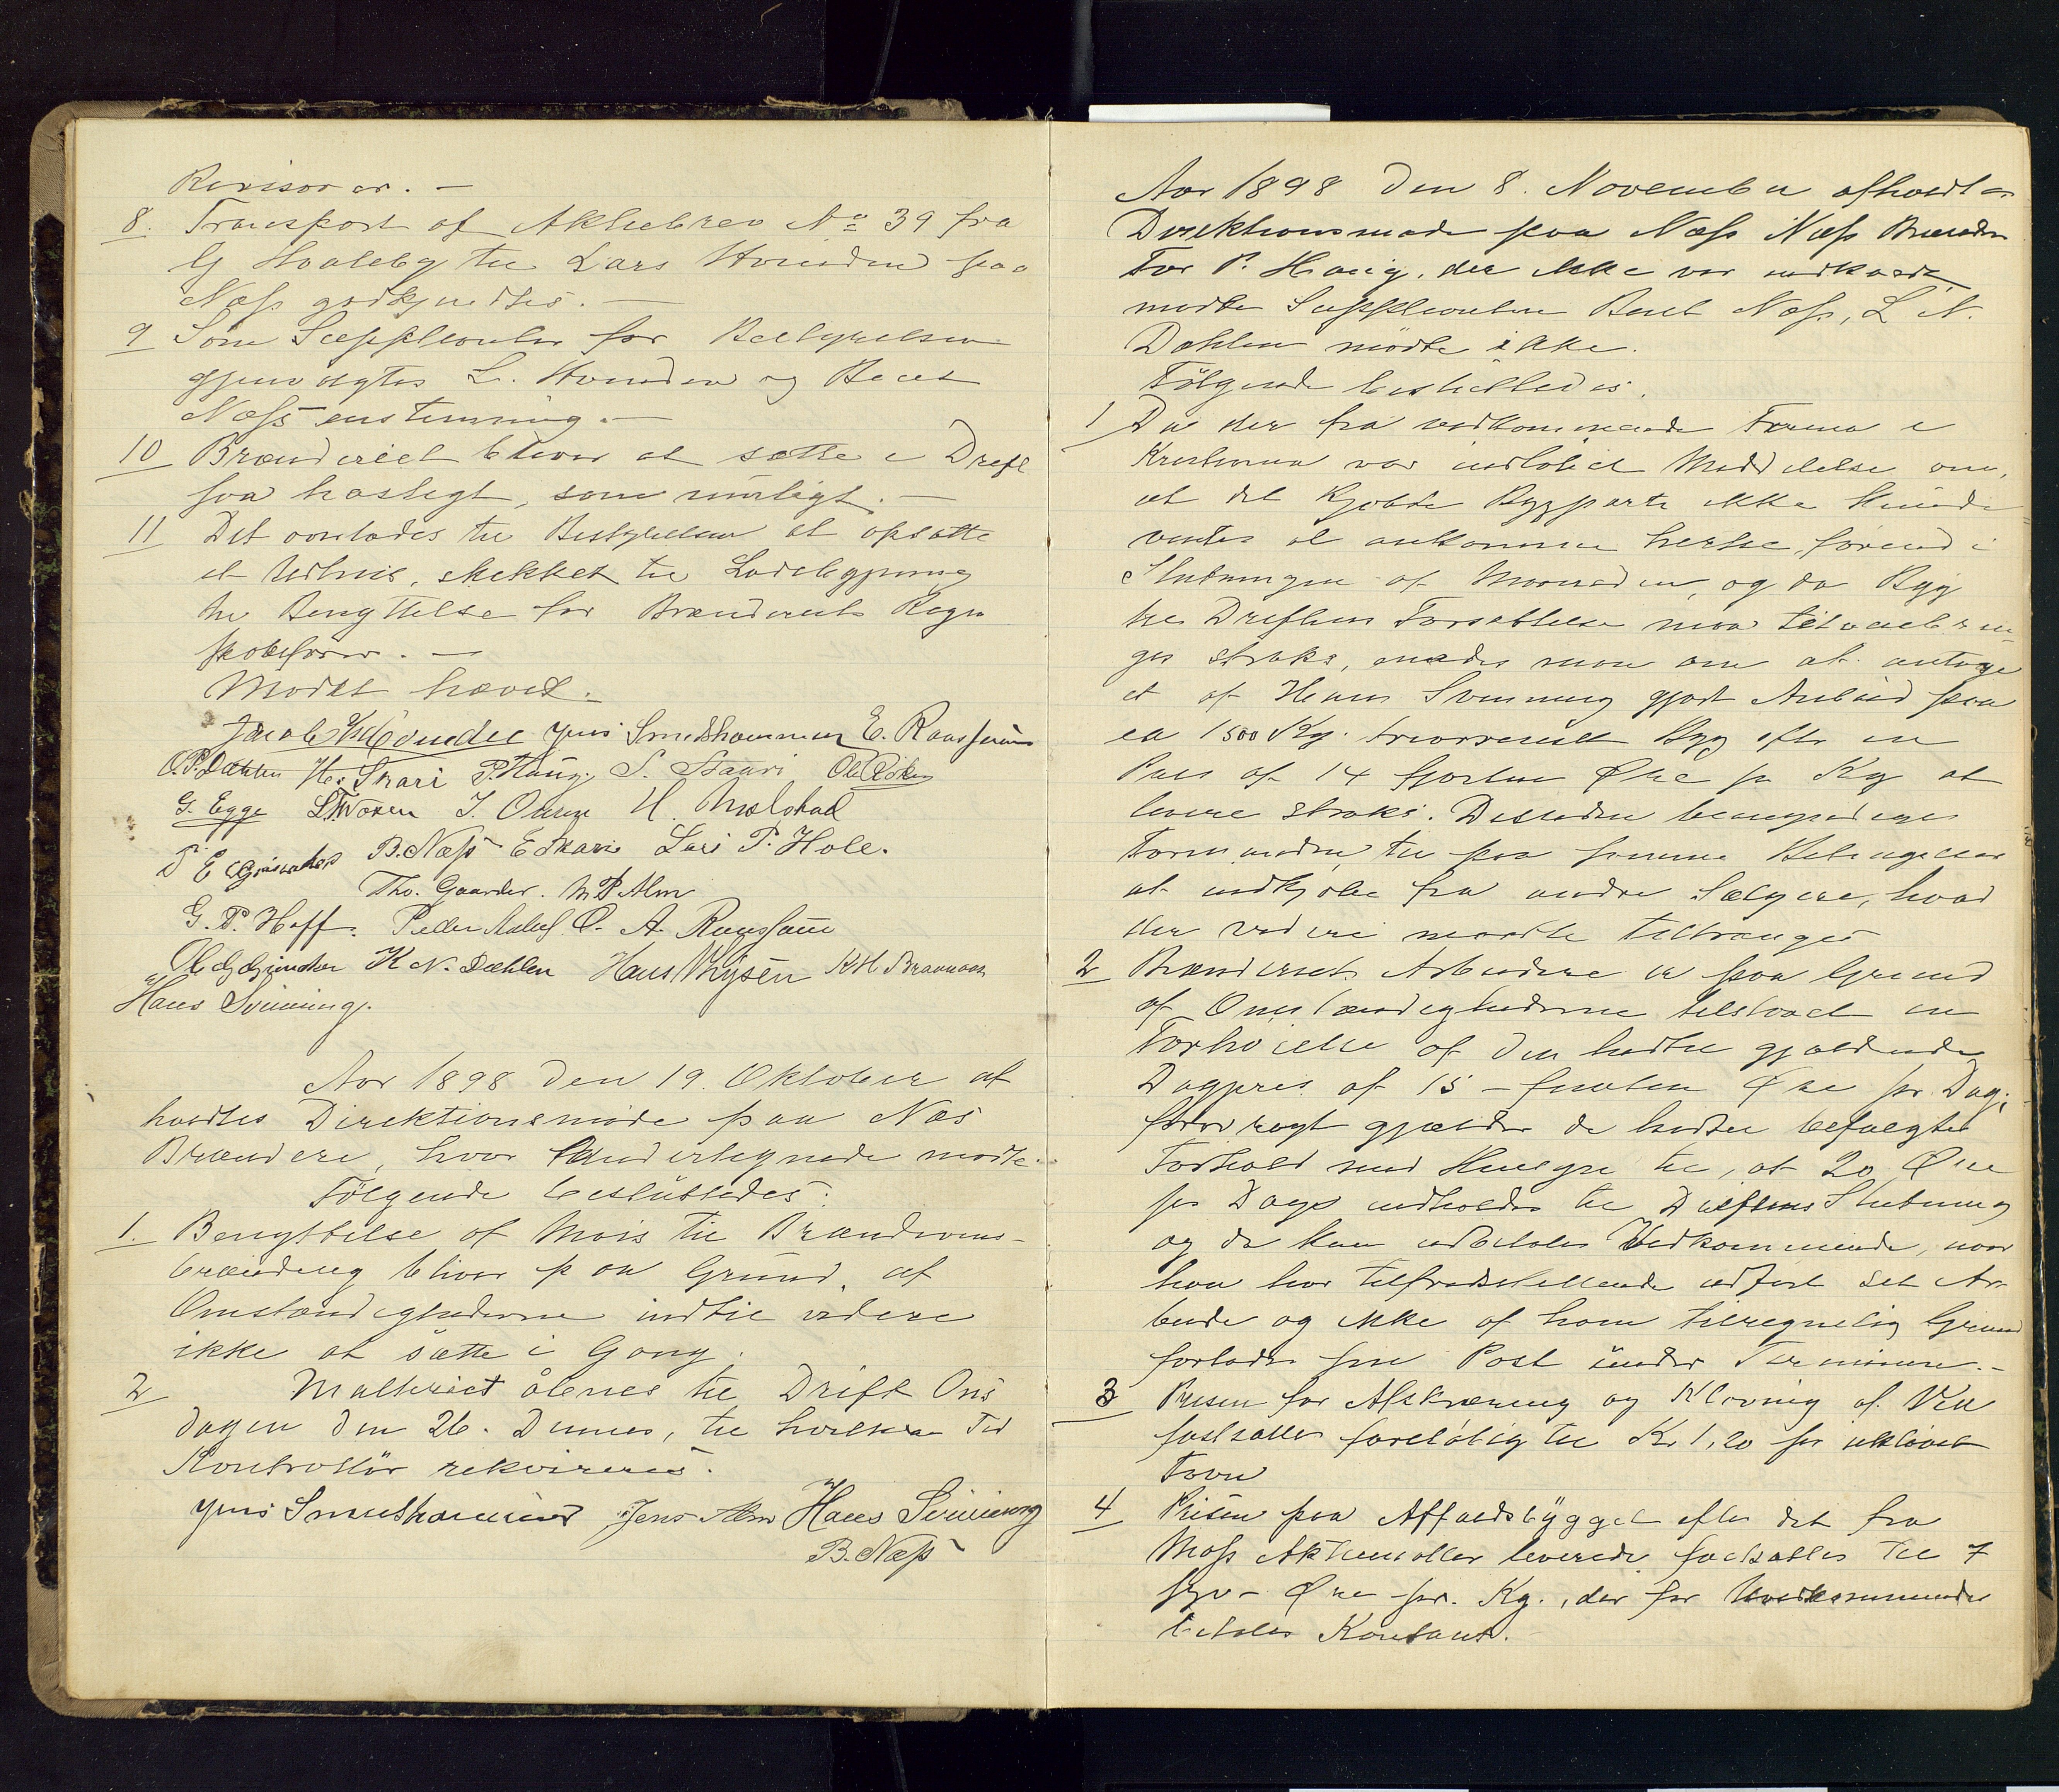 Revisorer. —
8. Transport af Aktiebrev No 39 fra
G Hvaleby til Lars Hvinden paa
Næss godkjendtes. —
9 Som Suppleanter for Bestyrelsen
gjenvalgtes L. Hvinden og Beret
Næss enstemmig. —
10 Brænderiet bliver at sætte i Drift
saa hastigt, som muligt. —
11 Det overlodes til Bestyrelsen at opsætte
et Udhus, skikket til
til Benyttelse for Brænderiets Regn
skabsfører. —
Mødet hævet.
Jens Smedshammer E. Raassum
O. P. Dæhlen Hs. Skari P. Haug. S. Skari
G. Egge J. Olsen H. Molstad
B. Næss E Skari Lars P. Hole.
Tho. Gaarder. M P Alm
G. P. Hoff. Peder A.
K N. Dæhlen Hans Thysen K H Braanaas
Hans Svinning.
Aar 1898 den 19. Oktober af
holdtes Direktionsmøde paa Næs
Brænderi, hvor Undertegnede mødte.
Følgende besluttedes:
1. Benyttelse af Mais til Brændevins-
brænding bliver paa Grund af
Omstændighederne indtil videre
ikke at sætte i Gang.
2 Malteriet åbnes til Drift Ons
dagen den 26. Dennes, til hvilken Tid
Kontrollør rekvireres.
Jens Smedshammer Jens Alm Hans Svinning
B. Næss
Aar 1898 den 8. November afholdtes
Direktionsmøde paa Næss Næss Brænderi
For P. Haug, der ikke var indkaldt,
mødte Suppleanten Beret Næss, L N.
Dæhlen mødte ikke.
Følgende besluttedes.
1 Da der fra vedkommende Firma i
Kristiania var indløbet Meddelelse om,
at det kjøbte Bygparti ikke kunde
ventes at ankomme hertil, førend i
Slutningen af Maaneden, og da Byg
til Driftens Fortsættelse maa tilveiebrin-
ges straks, enedes man om at antage
et af Hans Svinning gjort Anbud paa
ca 1500 Kg. Byg efter en
Pris af 14 fjorten Øre pr Kg at
levere straks. Desuden bemyndiges
Formanden til paa samme Betingelser
at indkjøbe fra andre Sælgere, hvad
der videre maatte tiltrænges
2 Brænderiets Arbeidere er paa Grund
af Omstændighederne tilstaaet en
Forhøielse af den hidtil gjældende
Dagpris af 15 – femten Øre pr. Dag;
forøvrigt gjælder de hidtil befulgte
Forhold med Hensyn til, at 20 Øre
pr Dag indholdes til Driftens Slutning
og da kun udbetales Vedkommende, naar
han har tilfredsstillende udført sit Ar-
beide og ikke af ham tilregnelig Grund
forlader sin Post under Terminen. –
3 Prisen for Afskjæring og Kløving af Ved
fastsættes foreløbig til Kr. 1,20 pr ukløvet
Favn
4 Prisen paa Affaldsbygget efter det fra
Moss Aktiemøller leverede fastsættes til 7
syv – Øre pr. Kg., der for Vedkommende
betales Kontant. –